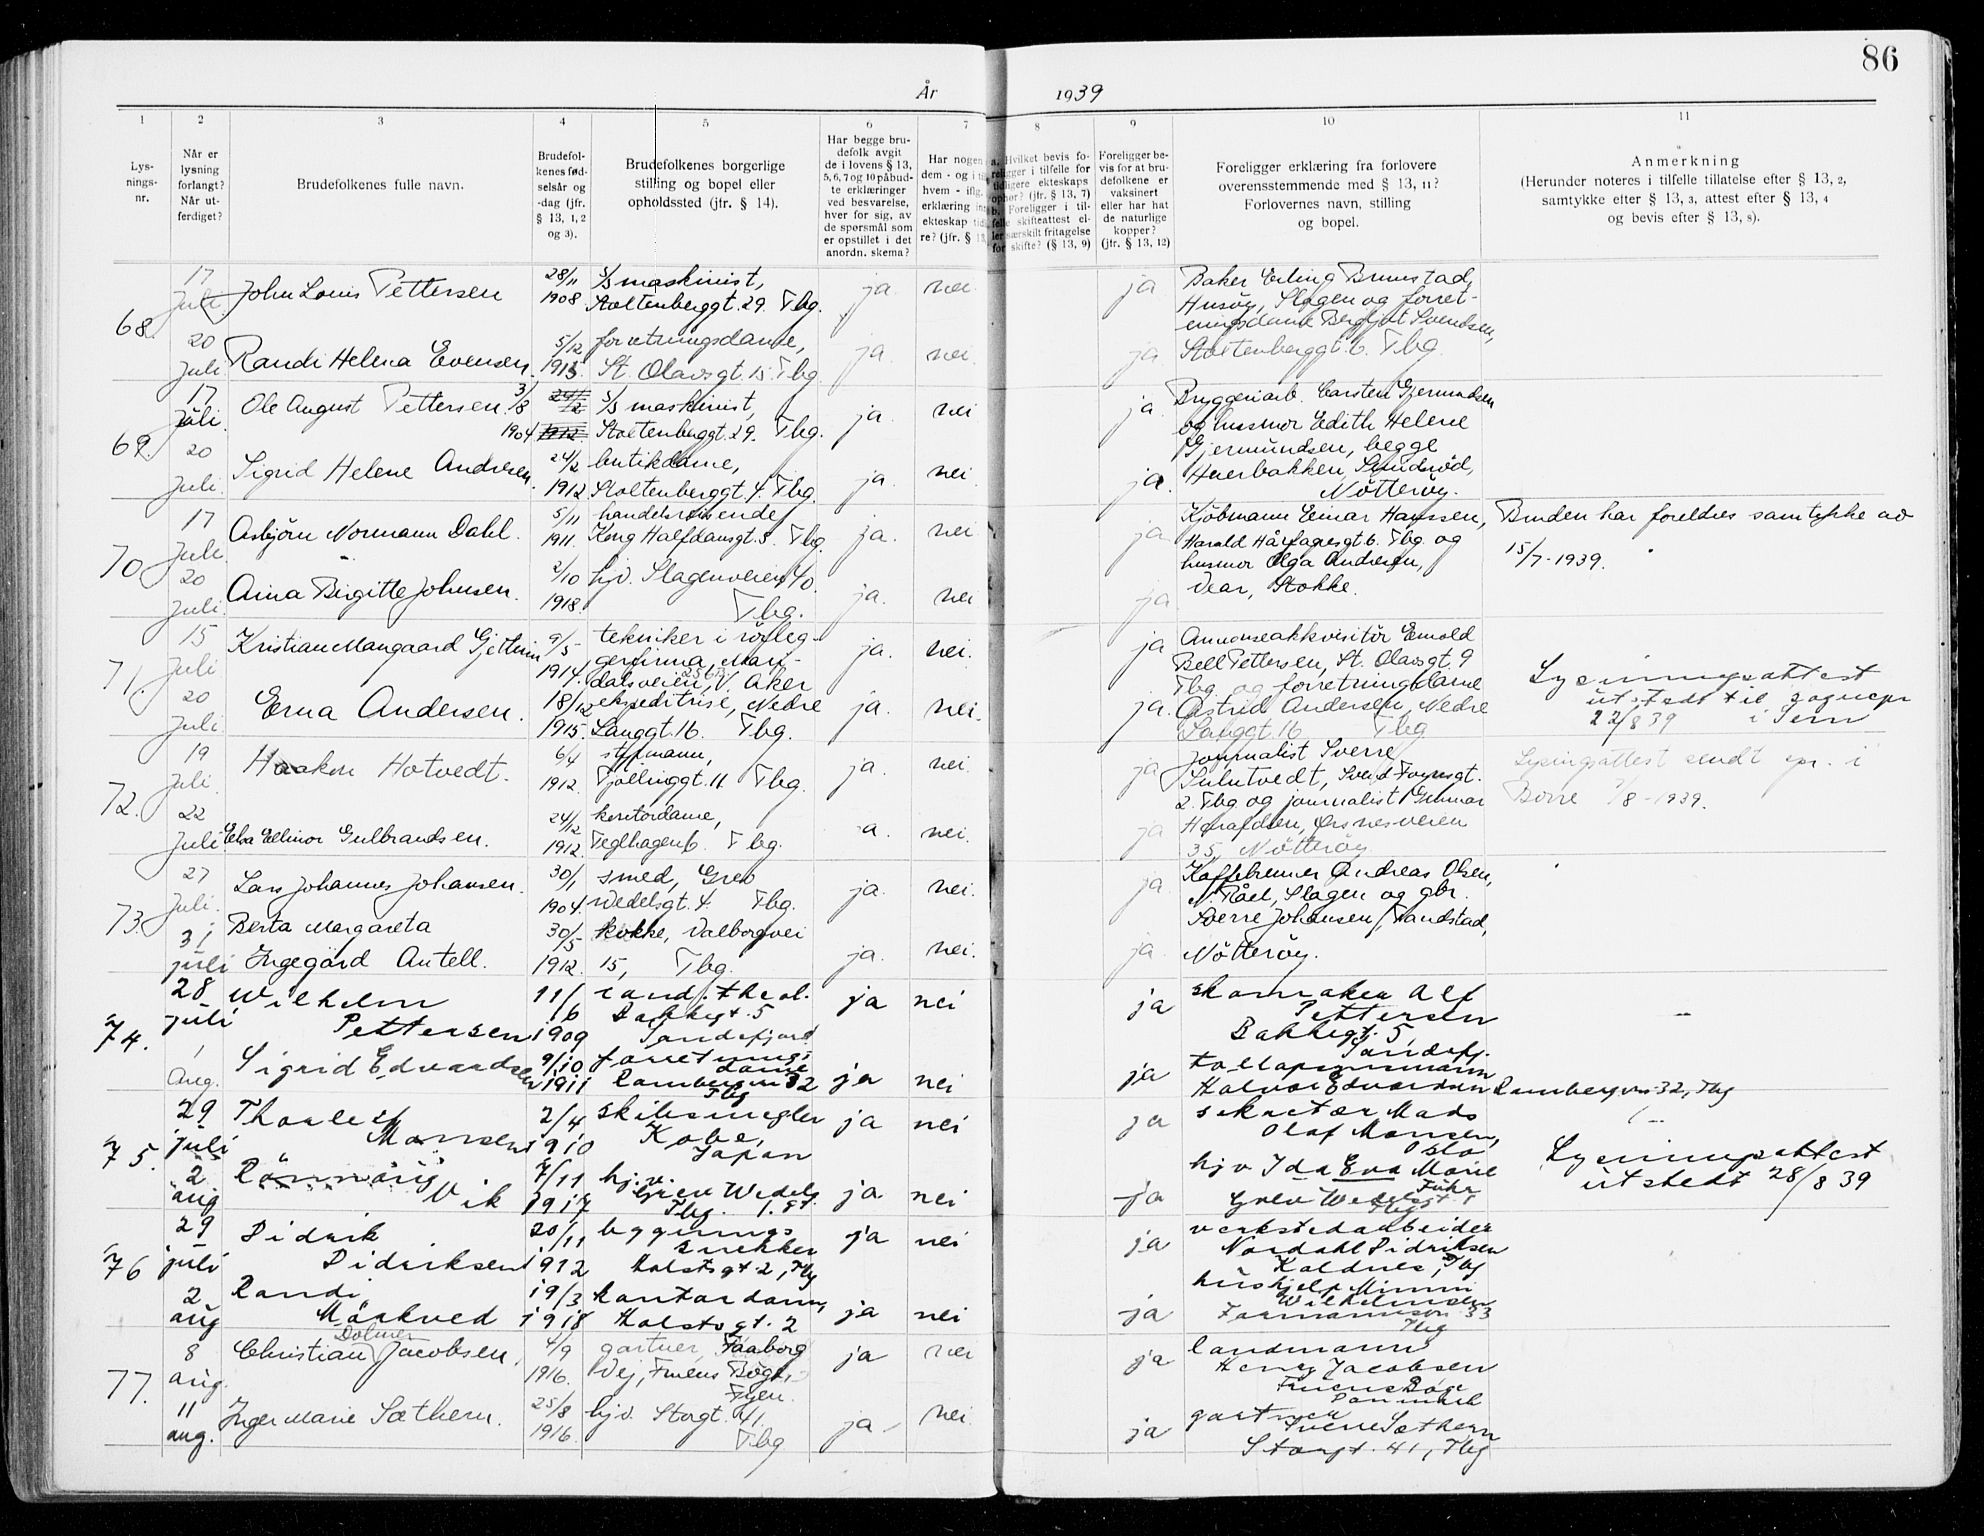 86
År 1939
1 2 3 4 5 6 7 8 9 10 11
Lysnings-nr.
Når er lysning forlangt? Når utferdiget?
Brudefolkenes fulle navn.
Brudefolkenes fødselsår og -dag (jfr. § 13, 1, 2 og 3).
Brudefolkenes borgerlige stilling og bopel eller opholdssted (jfr. § 14).
Har begge brudefolk avgit de i lovens § 13, 5, 6, 7 og 10 påbudte erklæringer ved besvarelse, hver for sig, av de spørsmål som er opstillet i det anordn. skema?
Har nogen
dem - og i ti
hvem - ifl.
erklæring in
ekteskap tid
re? (jfr. § 13,
a. Hvilket bevis foreligger i tilfelle for tidligere ekteskaps ophør? (jfr. § 13, 7)
b. Foreligger i tilfelle skifteattest eller særskilt fritagelse for skifte? (§ 13, 9)
Foreligger bevis for at brudefolkene er vaksinert eller har hat de naturlige kopper? (jfr. § 13, 12)
Foreligger erklæring fra forlovere overensstemmende med § 13, 11? Forlovernes navn, stilling og bopel.
Anmerkning
(Herunder noteres i tilfelle tillatelse efter § 13, 2,
samtykke efter § 13, 3, attest efter § 13, 4
og bevis efter § 13, 8).
68.
17 Juli John Louis Pettersen 28/11 1908 s/s maskinist, Stoltenberggt. 29. Tbg. ja. nei. ja
20 Juli Randi Helena Evensen 5/12 1913 forretningsdame, St. Olavsgt. 15. Tbg. ja. nei. ja
Baker Erling Brunstad,
Husøy, Slagen og forret-
ningsdame Bergljot Svendsen,
Stoltenberggt. 6. Tbg.
69.
17 Juli Ole August Pettersen 3/8 1904 24/2 1912 s/s maskinist, Stoltenberggt. 29. Tbg. ja. nei ja.
20 Juli Sigrid Helene Andresen 24/2 1912 butikdame, Stoltenberggt. 4. Tbg. ja. nei. ja.
Bryggeriarb. Carsten Gjermundsen
og husmor Edith Helene
Gjermundsen, begge
Huerbakken, Smidsrød,
Nøtterøy.
70
17 Juli Asbjörn Normann Dahl. 5/11 1911. handelsreisende, Kong Halfdansgt. 5. Tbg. ja. nei ja
20 Juli Aina Birgitte Johnsen. 2/10 1918. hjv. Slagenveien 40. Tbg. ja. nei ja
Kjøbmann Einar Hanssen,
Harald Hårfagresgt. 6. Tbg. og
husmor Olga Andresen,
Vear, Stokke.
Bruden har foreldres samtykke av
15/7-1939.
71.
15 Juli Kristian Mangaard 9/5 1914. tekniker i rörleg-gerfirma, Mari-dalsveien, V. Aker ja. nei. ja
20 Juli Erna Andersen. 18/12 1915. ekspeditrise, Nedre Langgt. 16. Tbg. ja. nei. ja.
Annonseakkvisitör
Bell Pettersen, St. Olavsgt. 9
Tbg. og forretningsdame
Astrid Andersen, Nedre
Langgt. 16. Tbg
Lysningsattest
utstedt til sognepr
22/8 39 i Sem
72.
19 Juli Haakon Hotvedt. 6/4 1912. styrmann, Tjøllinggt. 11. Tbg. ja. nei. ja
22 Juli Elsa Ellinor Gulbrandsen. 24/12 1912. kontordame, Teglhagen 6. Tbg. ja. nei. ja
Journalist Sverre
Svend Foynsgt.
2. Tbg og journalist Gunnar
Haraldsen, Ørsnesveien
35, Nøtterøy
Lysingsattest sendt spr. i
Borre 7/8-1939.
73.
27 Juli. Lars Johannes Johansen. 30/1 1904. smed, Grev Wedelsgt. 4. Tbg. ja. nei. ja
31 juli Berta Margareta Ingegärd Antell. 30/5 1912. kokke, Valborgvei 15, Tbg. ja. nei. ja
Kaffebrenner Andreas Olsen,
N. Råel, Slagen og gbr.
Sverre Johansen, Strandstad,
Nøtterøy.
74.
28 juli Wilhelm Pettersen 11/6 1909 cand. theol. Bakkegt. 5 Sandefjord ja nei ja
1 Aug. Sigrid Edvardsen 9/10 1911 forretningsdame Rambergvn 32 Tbg ja nei ja
skomaker Alf
Pettersen
Bakkegt. 5,
Sandefj.
tolloppsynsmann
Halvor Edvardsen Rambergvn 32, Tbg
75.
29 juli Thorleif Monsen 2/4 1910 skibsmegler Kobe, Japan ja nei ja
2 aug Rönnaug Vik 7/11 1917 hj.v. Grev Wedels gt. 1. Tbg. ja nei ja
sekretær Mads
Olaf Monsen,
Oslo
hjv Ida Eva Marie
Führ
Grev Wedelsgt 1
Tbg
Lysningsattest
utstedt 28/8 39
76
29 juli Didrik Didriksen 20/11 1912 bygningssnekker Holstsgt 2, Tbg ja nei ja
2 aug Randi Mörkved 19/3 1918 kontordame Holstsgt. 2 ja nei ja
verkstedarbeider
Nordahl Didriksen
Kaldnes, Tbg
hushjelp Mimmi
Wilhelmsen
Farmannsvn 33
Tbg
77.
8 aug. Christian Dolmer Jacobsen, 4/9 1916. gartner, Faaborg Vej, Fruens Böge, Fyen. ja nei ja
11 aug. Inger Marie Sæthern. 25/8 1916. hjv. Storgt. 41. Tbg ja nei ja
landmann
Henry Jacobsen
Fruens Böge
Danmark
gartner
Sverre Sæthern
Storgt. 41, Tbg